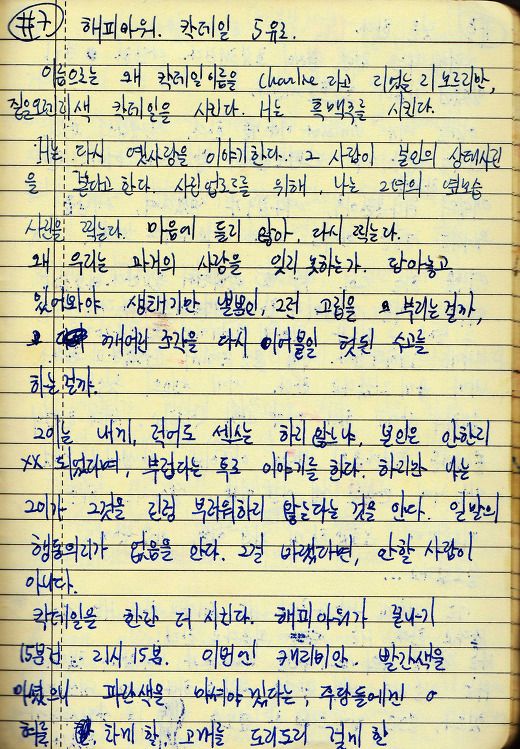 #7 해피아워. 칵테일 5유로.
이름으로는 왜 칵테일이름을 Charlie라고 지었는지 모르지만,
짙은 색 칵테일을 시킨다. 나는 흑맥주를 시킨다.
나는 다시 옛사랑을 이야기한다. 그 사람이 본인의 상태사진
을 본다고 한다. 사진업로드를 위해, 나는 그녀의 옆모습
사진을 찍는다. 마음에 들지 않아, 다시 찍는다.
왜 우리는 과거의 사랑을 잊지 못하는가. 담아놓고
있어봐야 생채기만 날뿐인, 그런 고집을 부리는걸까,
깨어진 조각을 다시 이어붙일 헛된 수고를
하는걸까.
그이는 내게, 적어도 섹스는 하지 않느냐, 본인은 안한지
XX 되었다며, 부럽다는 투로 이야기를 한다. 하지만 나는
그이가 그것을 진정 부러워하지 않는다는 것을 안다. 일말의
행동의지가 없음을 안다. 그걸 바랬다면, 안할 사람이
아니다.
칵테일은 한잔 더 시킨다. 해피아워가 끝나기
15분전. 9시 15분. 이번엔 캐리비안. 빨간색을
마셨으니 파란색을 마셔야 있다는, 주당들에겐
혀를 차게 할, 고개를 도리도리 젓게 할